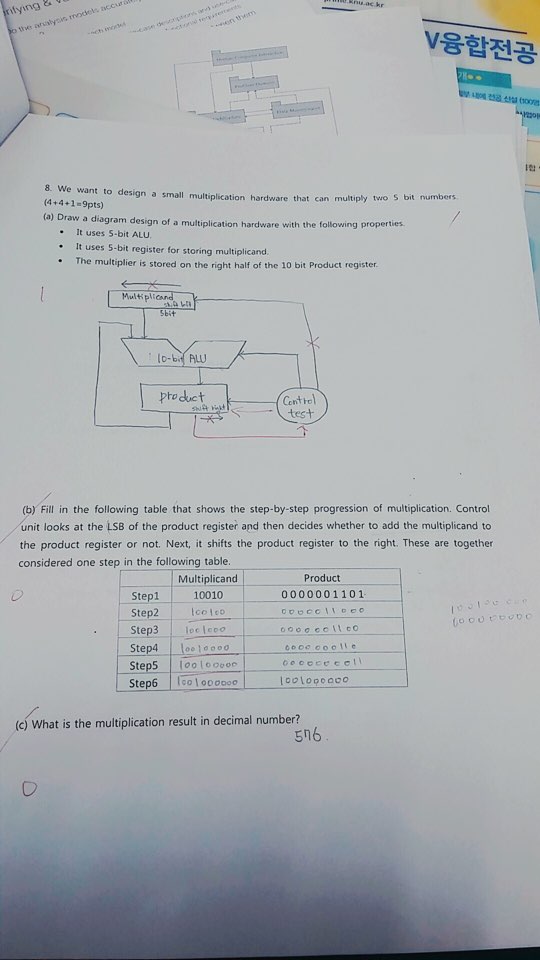 ntifying &
o the analysis models accurat
ach model
case descriptions and
functional requirements
ween them
knu.ac.kr
V융합전공
8. We want to design a small multiplication hardware that can multiply two 5 bit numbers.
(4+4+1=9pts)
(a) Draw a diagram design of a multiplication hardware with the following properties.
• It uses 5-bit ALU.
• It uses 5-bit register for storing multiplicand.
• The multiplier is stored on the right half of the 10 bit Product register.
Multiplicand
shift left
5bit
10-bit ALU
product
shift right
Control
test
(b) Fill in the following table that shows the step-by-step progression of multiplication. Control
unit looks at the LSB of the product register and then decides whether to add the multiplicand to
the product register or not. Next, it shifts the product register to the right. These are together
considered one step in the following table.
Multiplicand Product
Step1 10010 0000001101
Step2 100100 0000011000
Step3 1001000 0000001100
Step4 10010000 0000000110
Step5 100100000 0000000011
Step6 1001000000 1001000000
(c) What is the multiplication result in decimal number?
576.
0